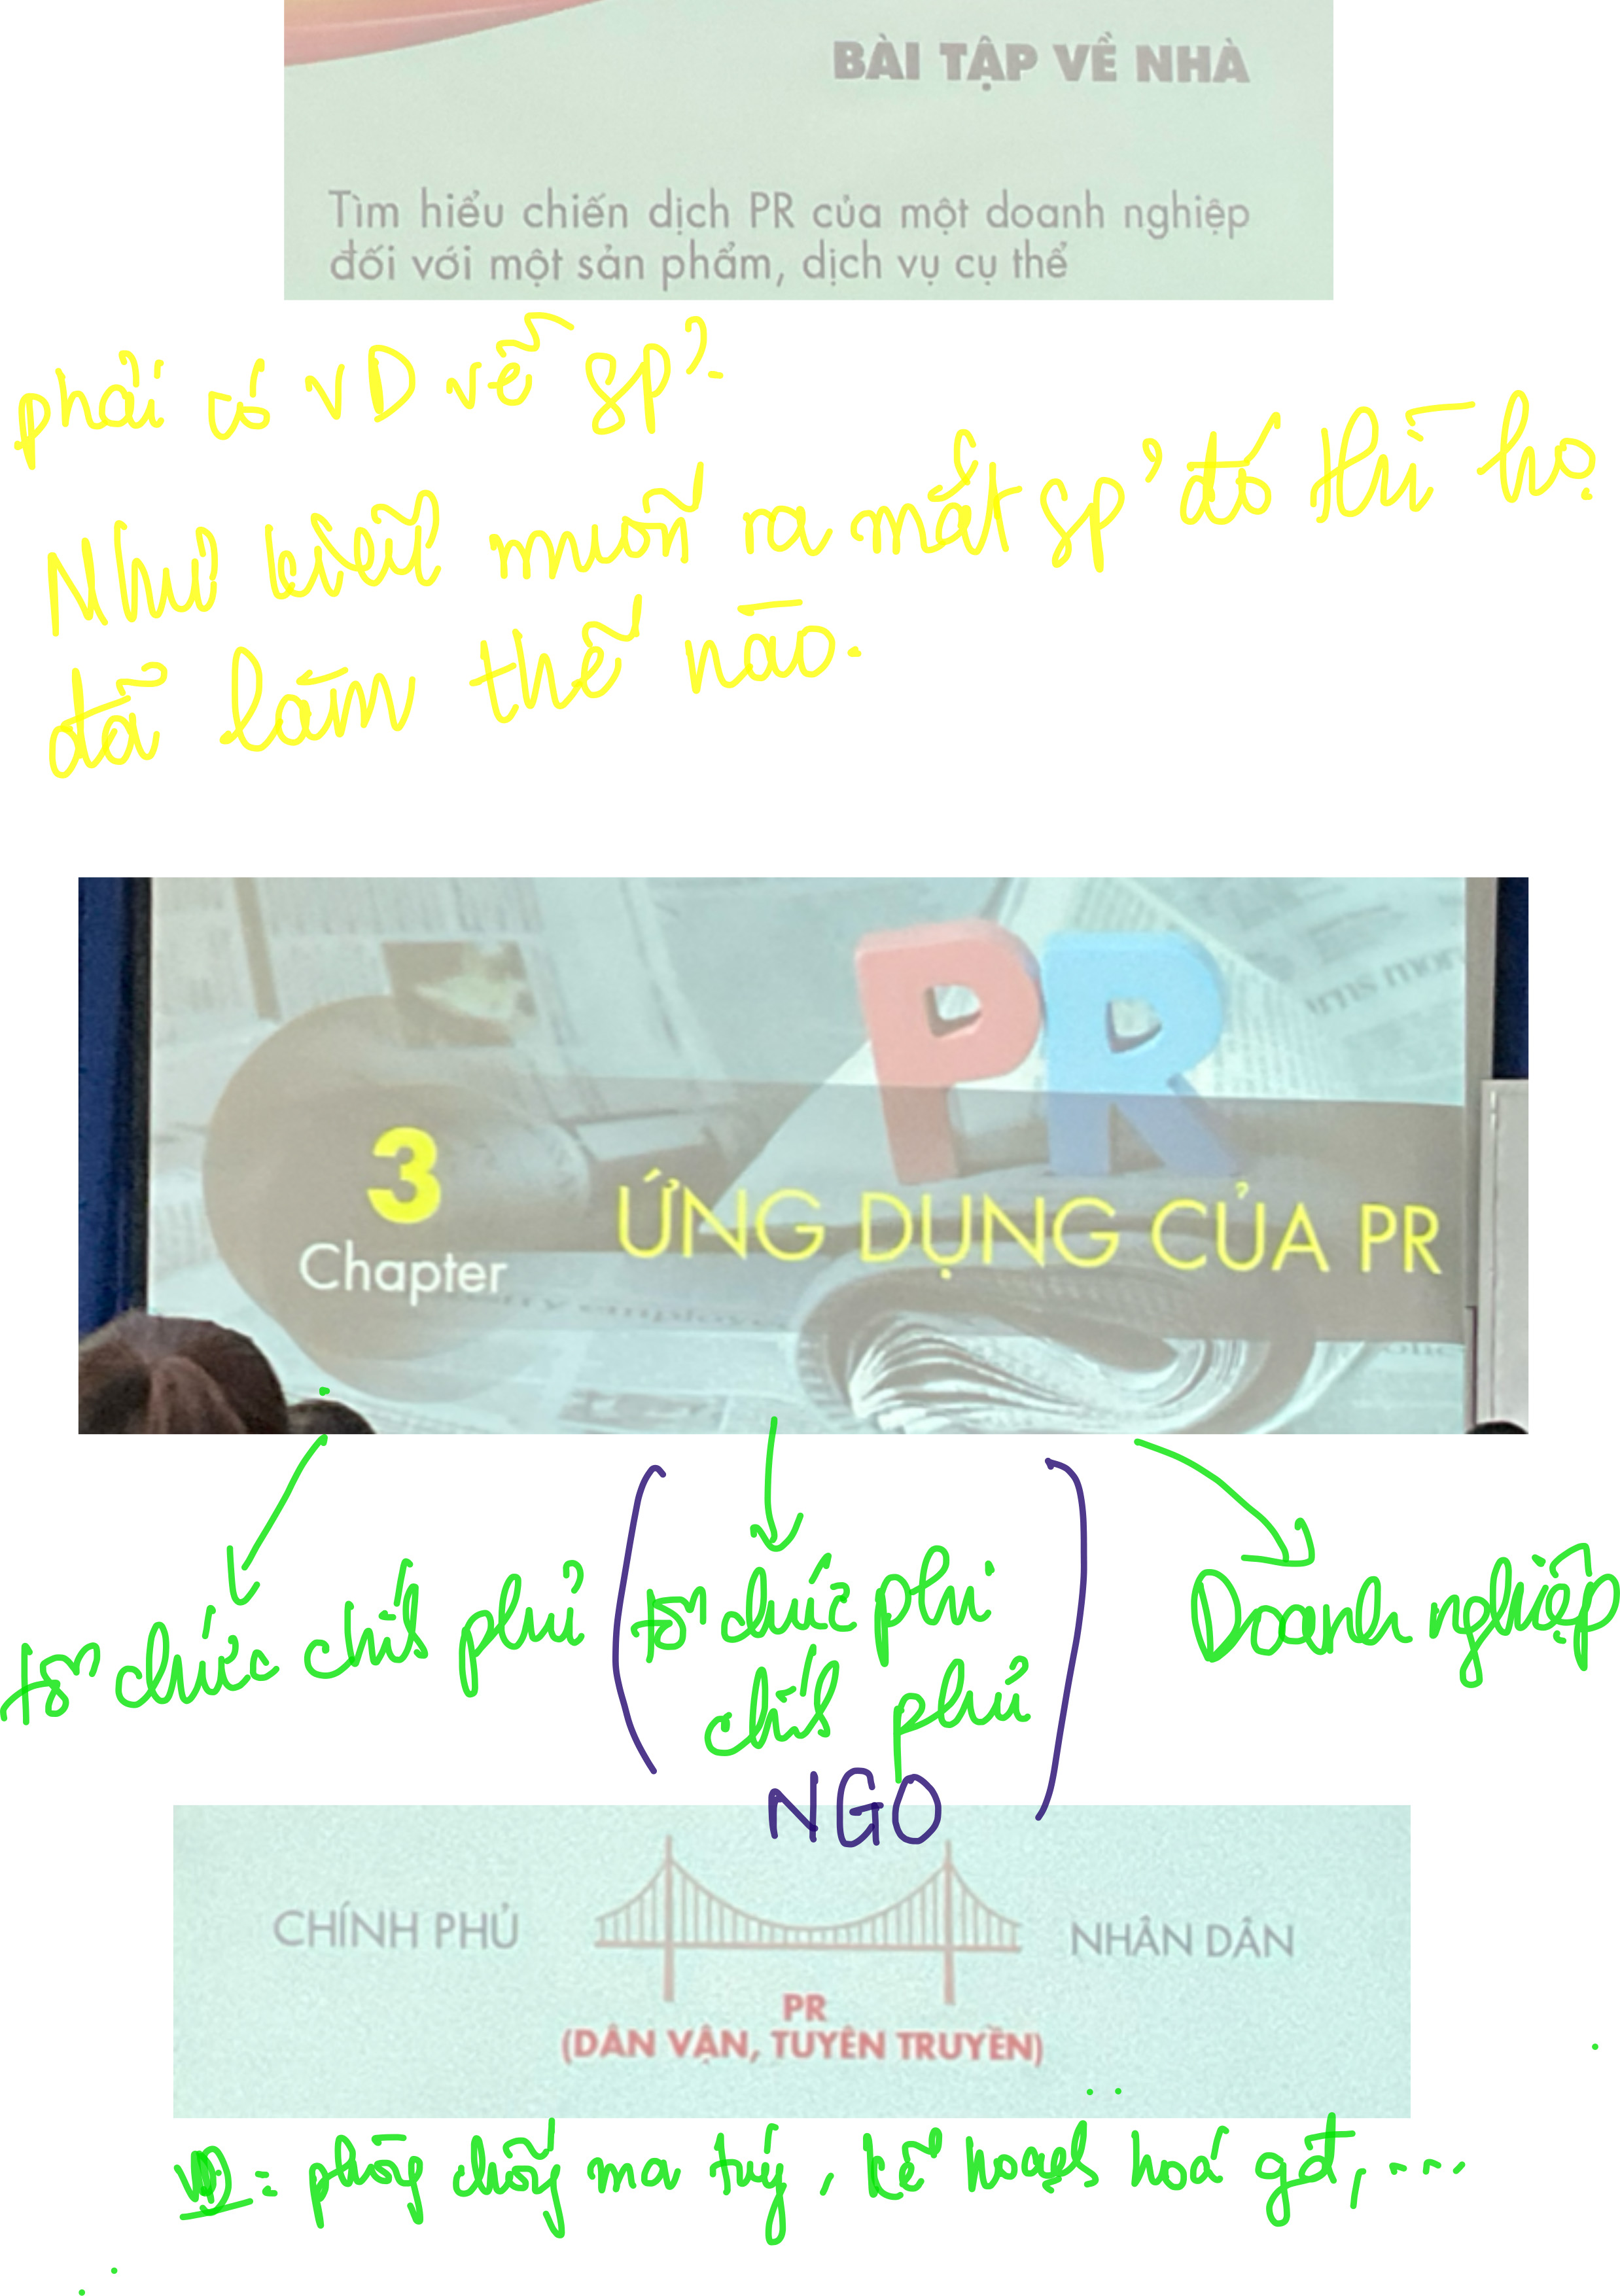 BÀI TẬP VỀ NHÀ
Tìm hiểu chiến dịch PR của một doanh nghiệp
đối với một sản phẩm, dịch vụ cụ thể
phải có VD về sp?
Như kiểu muốn ra mắt sp' đó thì họ
đã làm thế nào.
PR
3
Chapter
ỨNG DỤNG CỦA PR
tổ chức chính phủ
tổ chức phi
chính phủ
NGO
Doanh nghiệp
CHÍNH PHỦ
NHÂN DÂN
PR
(DÂN VẬN, TUYÊN TRUYỀN)
VD: phòng chống ma túy, kế hoạch hoá gđ,....